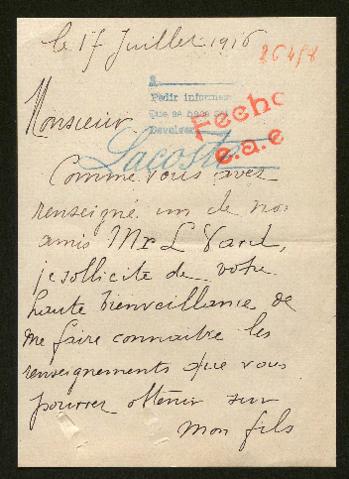 le 17 Juillet 1916
26498
A
Pedir informes
Que se haga
Devolver
Fecho
e.a.e
Monsieur
Lacoste
Comme vous avez
renseigné un de nos
amis Mr L Vard,
je sollicite de votre
haute bienveillance de
me faire connaitre les
renseignements que vous
pourrez obtenir sur
mon fils